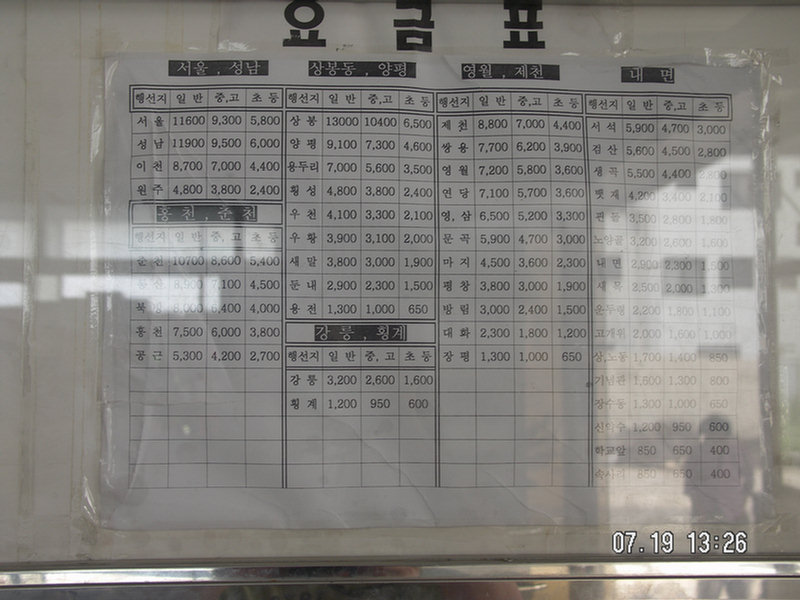 요금표
서울 , 성남
행선지 일반 중,고 초등
서울 11600 9,300 5,800
성남 11900 9,500 6,000
이천 8,700 7,000 4,400
원주 4,800 3,800 2,400
홍천 , 춘천
행선지 일반 중,고 초등
춘천 10700 8,600 5,400
8,900 7,100 4,500
8,000 6,400 4,000
홍천 7,500 6,000 3,800
공근 5,300 4,200 2,700
상봉동 , 양평
행선지 일반 중,고 초등
상봉 13000 10400 6,500
양평 9,100 7,300 4,600
용두리 7,000 5,600 3,500
횡성 4,800 3,800 2,400
우천 4,100 3,300 2,100
우황 3,900 3,100 2,000
새말 3,800 3,000 1,900
둔내 2,900 2,300 1,500
용전 1,300 1,000 650
강릉 , 횡계
행선지 일반 중,고 초등
강릉 3,200 2,600 1,600
횡계 1,200 950 600
영월 , 제천
행선지 일반 중,고 초등
제천 8,800 7,000 4,400
쌍용 7,700 6,200 3,900
영월 7,200 5,800 3,600
연당 7,100 5,700 3,600
영,삼 6,500 5,200 3,300
문곡 5,900 4,700 3,000
마지 4,500 3,600 2,300
평창 3,800 3,000 1,900
방림 3,000 2,400 1,500
대화 2,300 1,800 1,200
장평 1,300 1,000 650
내면
행선지 일반 중,고 초등
서석 5,900 4,700 3,000
검산 5,600 4,500 2,800
생곡 5,500 4,400 2,800
뱃재 4,200 3,400 2,100
3,500 2,800 1,800
노양골 3,200 2,600 1,600
내면 2,900 2,300 1,500
새목 2,500 2,000 1,300
운두령 2,200 1,800 1,100
고개위 2,000 1,600 1,000
삼,노동 1,700 1,400 850
기념관 1,600 1,300 800
장수동 1,300 1,000 650
신약수 1,200 950 600
학교앞 850 650 400
속사리 850 650 400
07.19 13:26